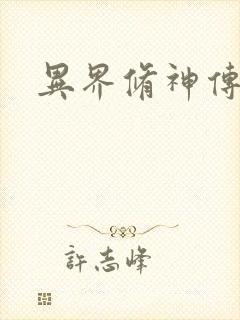 異界脩神傳
許志峰